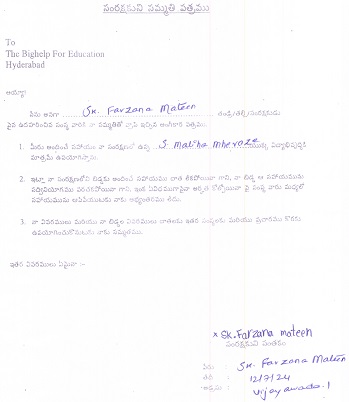 సంరక్షకుని సమ్మతి పత్రము
To
The Bighelp For Education
Hyderabad
అయ్యా!
నేను అనగా Sk. Farzana Mateen తండ్రి/తల్లి/సంరక్షకుడు
పైన ఉదహరించిన సంస్థ వారికి నా సమ్మతితో వ్రాసి ఇచ్చిన అంగీకార పత్రము.
1. మీరు అందించే సహాయం నా సంరక్షణలో ఉన్న S Matiha Mheroze యొక్క విద్యాభివృద్ధికి
మాత్రమే ఉపయోగిస్తాను.
2. ఇట్లా నా సంరక్షణలోని బిడ్డకు అందించే సహాయము దాత లేకపోయినా గాని, నా బిడ్డ ఆ సహాయముకు
సద్వినియోగము పరచకపోయినా గాని, ఇంక ఏవిధముగానైనా అర్హత కోల్పోయినా పై సంస్థ వారు మధ్యలో
సహాయమును ఆపివేయుటకు నాకు అభ్యంతరము లేదు.
3. నా వివరములు మరియు నా బిడ్డల వివరములు దాతలకు ఇతర సంస్థలకు మరియు ప్రచారము కొరకు
ఉపయోగించుకొనుటకు నాకు సమ్మతము.
ఇతర వివరములు ఏమైనా :-
x Sk. Farzana mateen
సంరక్షకుని సంతకం
పేరు : Sk. Farzana Mateen
తేది : 12/7/24
: Vijayawada.1